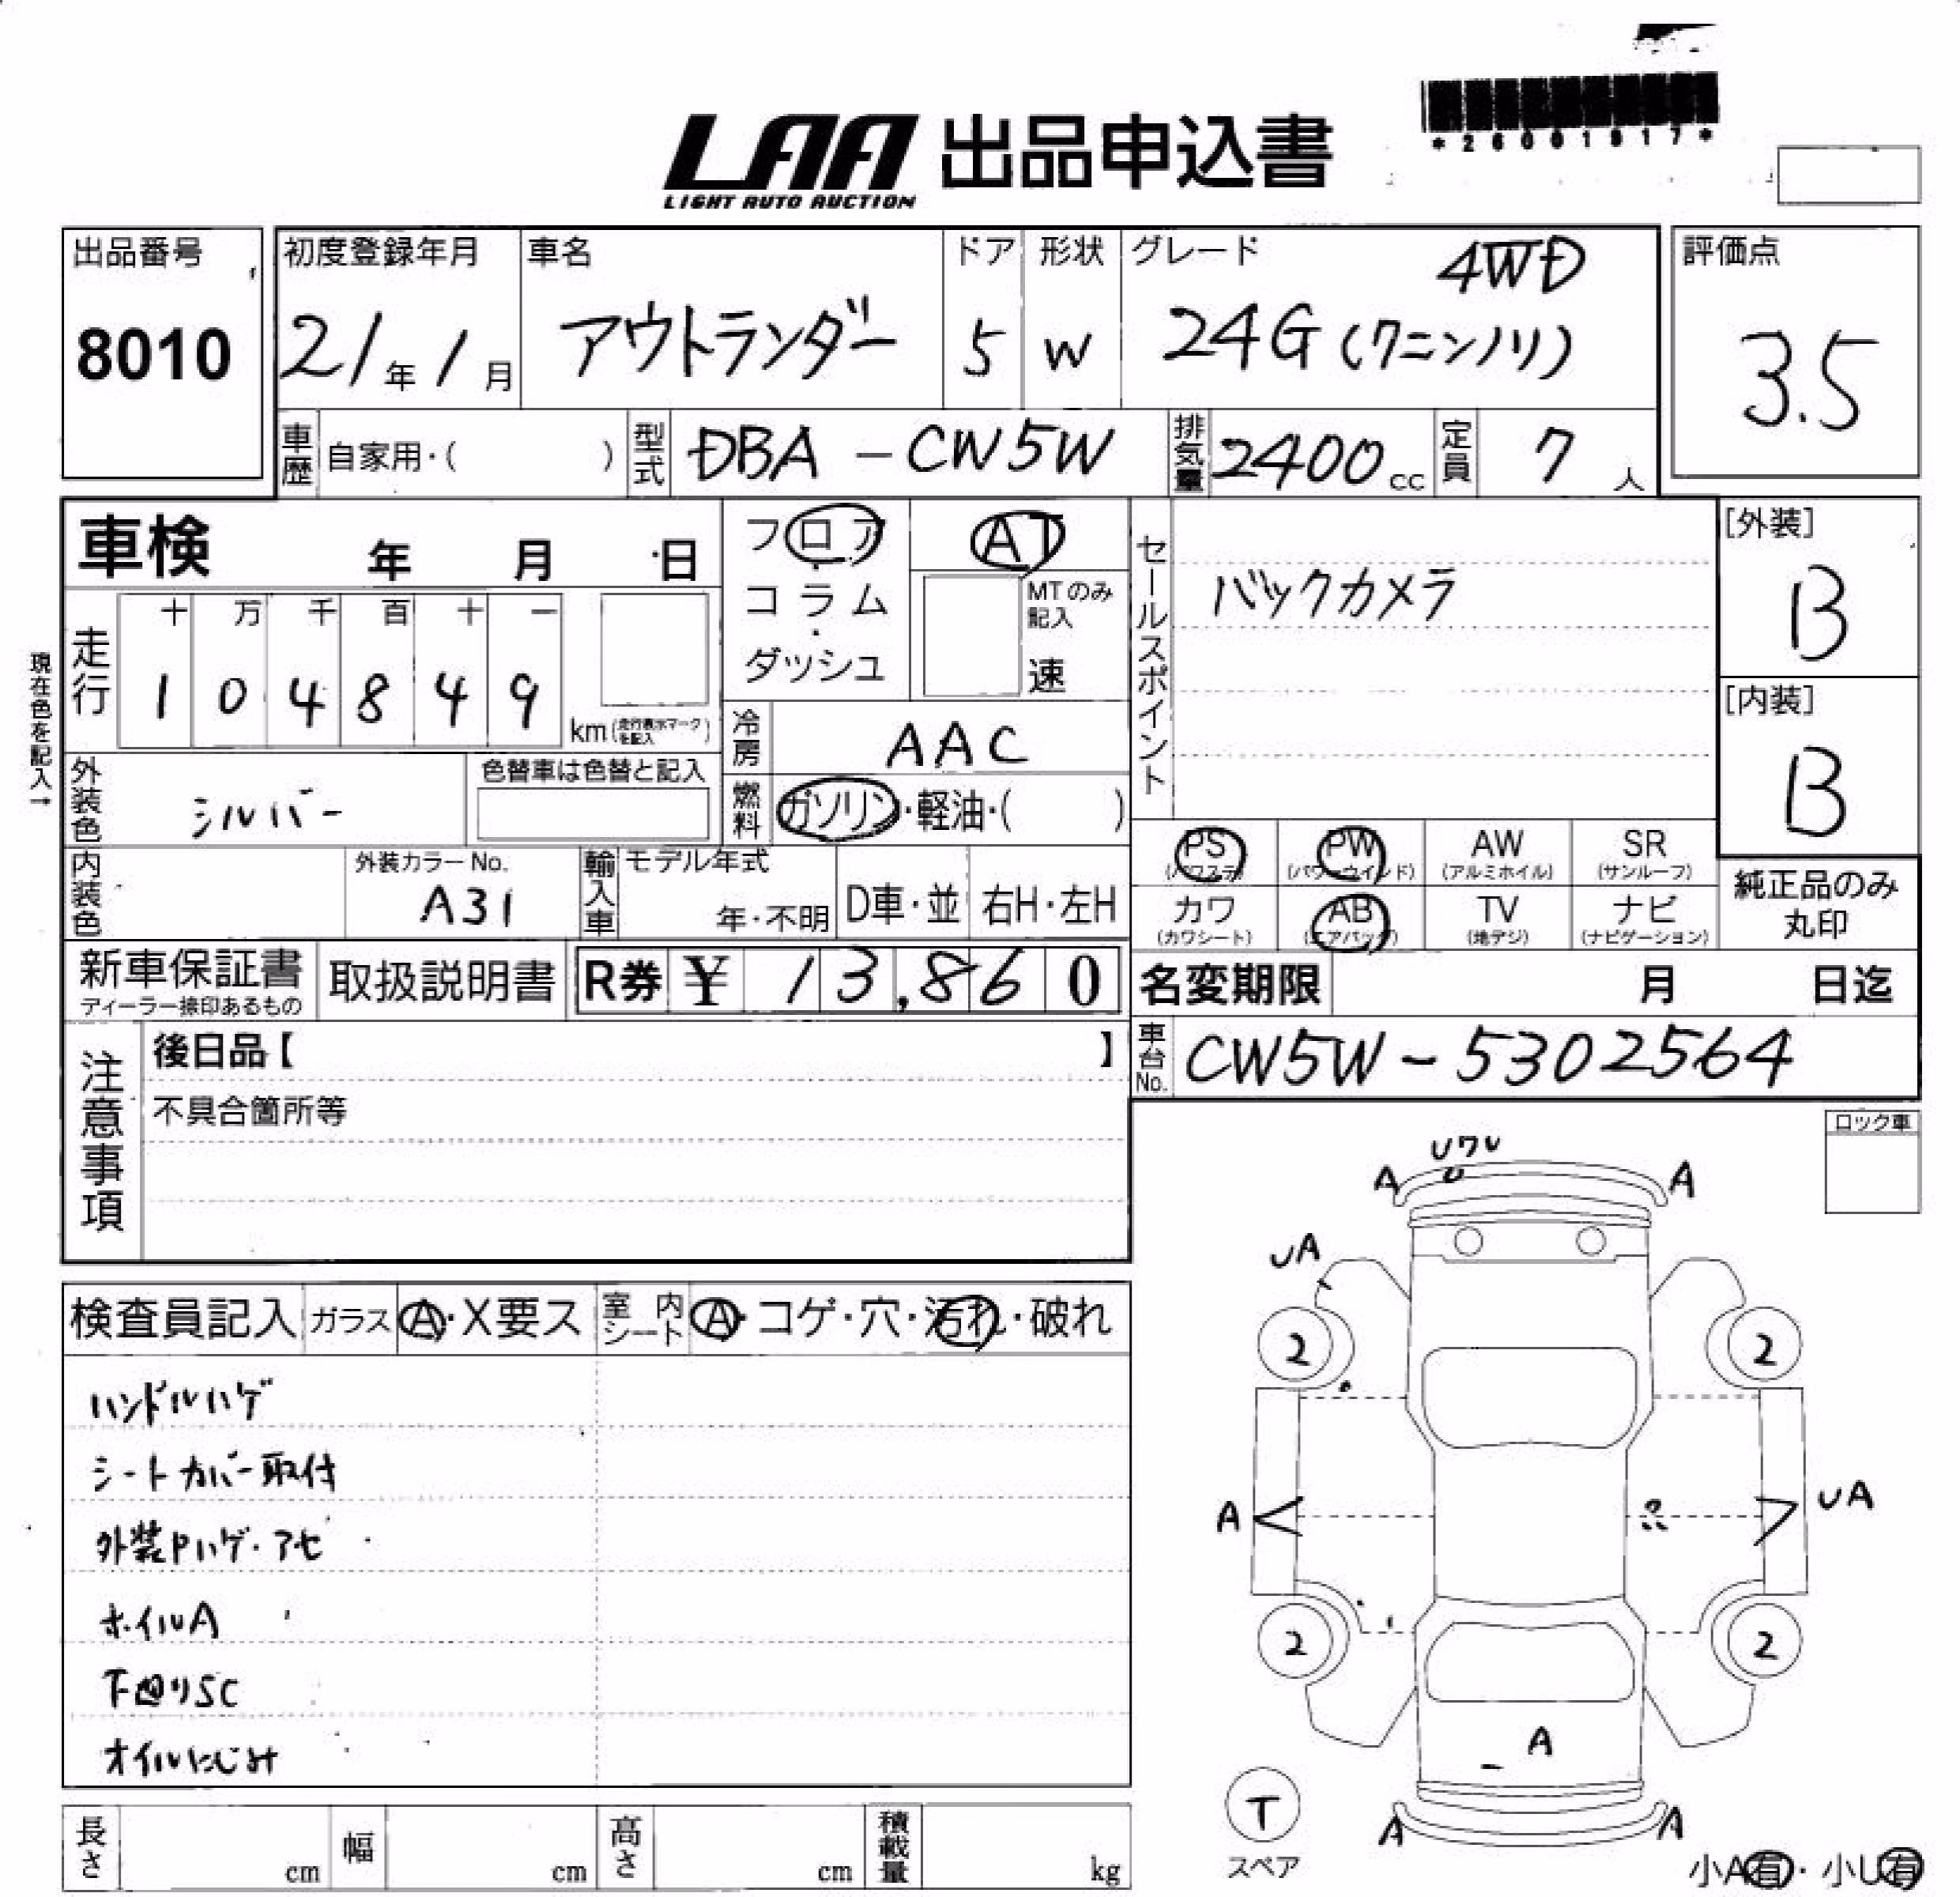 *26001917*
LAA 出品申込書
LIGHT AUTO AUCTION
出品番号
8010
初度登録年月
21年1月
車名
アウトランダー
ドア
5
形状
W
グレード
4WD
24G(7ニンノリ)
評価点
3.5
車歴 自家用・( )
型式 DBA-CW5W
排気量 2400cc
定員 7人
車検 年 月 日
フロア
コラム
・
ダッシュ
AT
MTのみ
記入
速
セールスポイント
バックカメラ
[外装]
B
[内装]
B
現在色を記入→
走行
十 万 千 百 十 一
1 0 4 8 4 9
km(走行表示マークを記入)
冷房 AAC
外装色 シルバー
色替車は色替と記入
燃料 ガソリン・軽油・( )
PS (パワステ)
PW (パワーウインド)
AW (アルミホイル)
SR (サンルーフ)
カワ (カワシート)
AB (エアバッグ)
TV (地デジ)
ナビ (ナビゲーション)
純正品のみ
丸印
内装色
外装カラーNo.
A31
輸入車
モデル年式
年・不明
D車・並
右H・左H
新車保証書
ディーラー捺印あるもの
取扱説明書
R券 ¥ 13,860
名変期限 月 日迄
車台No. CW5W-5302564
注意事項
後日品【 】
不具合箇所等
ロック車
検査員記入
ガラス A・X要ス
室内シート A・コゲ・穴・汚れ・破れ
ハンドルハゲ
シートカバー取付
外装Pハゲ・アセ
ホイルA
下廻りSC
オイルにじみ
Uワレ
A A
UA
2 2
A UA
2 2
A
T
スペア
A A
小A有・小U有
長さ cm
幅 cm
高さ cm
積載量 kg